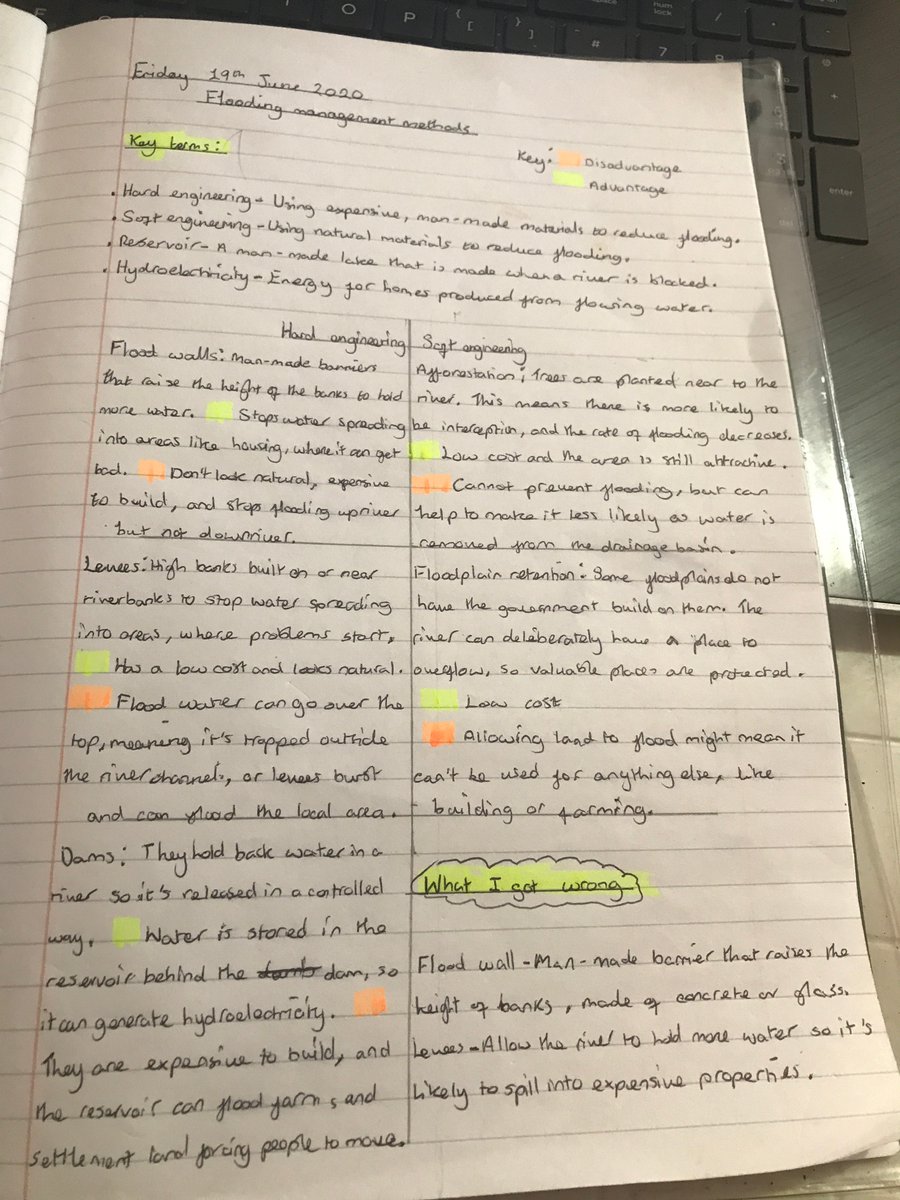 Friday 19th June 2020
Flooding management methods
Key terms:
Key:
Disadvantage
Advantage
• Hard engineering - Using expensive, man-made materials to reduce flooding.
• Soft engineering - Using natural materials to reduce flooding.
• Reservoir - A man-made lake that is made where a river is blocked.
• Hydroelectricity - Energy for homes produced from flowing water.
Hard engineering
Flood walls: Man-made barriers
that raise the height of the banks to hold
more water. Stops water spreading
into areas like housing, where it can get
bad. Don't look natural, expensive
to build, and stops flooding upriver
but not downriver.
Levees: High banks built on or near
riverbanks to stop water spreading
into areas, where problems start.
Has a low cost and looks natural.
Flood water can go over the
top, meaning it's trapped outside
the river channel, or levees burst
and can flood the local area.
Dams: They hold back water in a
river so it's released in a controlled
way. Water is stored in the
reservoir behind the dam, so
it can generate hydroelectricity.
They are expensive to build, and
the reservoir can flood farm and
settlement land forcing people to move.
Soft engineering
Afforestation: Trees are planted near to the
river. This means there is more likely to
be interception, and the rate of flooding decreases.
Low cost and the area is still attractive.
Cannot prevent flooding, but can
help to make it less likely as water is
removed from the drainage basin.
Floodplain retention: Some floodplains do not
have the government build on them. The
river can deliberately have a place to
overflow, so valuable places are protected.
Low cost
Allowing land to flood might mean it
can't be used for anything else, like
building or farming.
What I got wrong
Flood wall - Man-made barrier that raises the
height of banks, made of concrete or glass.
Levees - Allow the river to hold more water so it's
likely to spill into expensive properties.
O
P
{
[
}
]
~
#
num
lock
7
/
*
-
8
9
+
enter